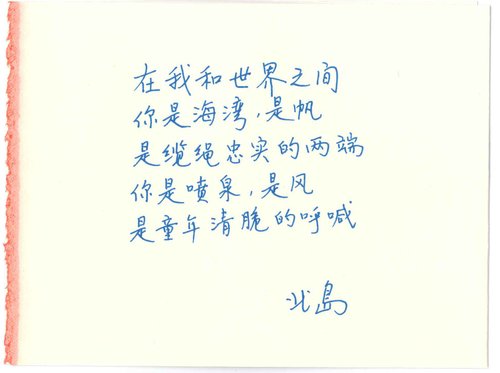 在我和世界之间
你是海湾,是帆
是缆绳忠实的两端
你是喷泉,是风
是童年清脆的呼喊
北岛